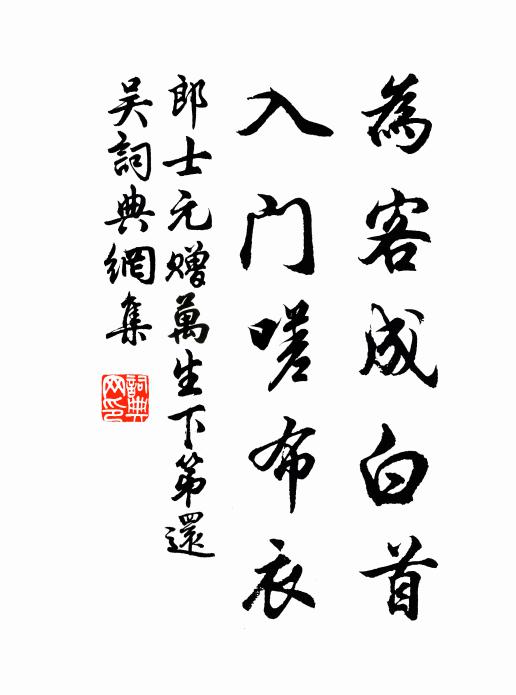 為客成白首
入门嗟布衣
郎士元赠萬生下第還
吴詞典網集
詞典网印